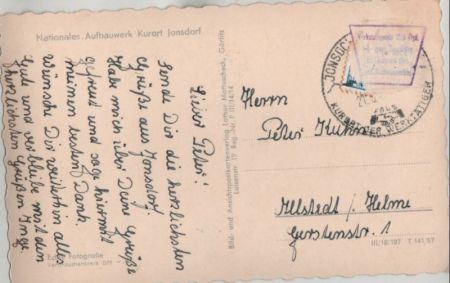 Nationales Aufbauwerk Kurort Jonsdorf
Lieber Peter!
Sende Dir die herzlichsten
Grüße aus Jonsdorf.
Habe mich über Deine Grüße
gefreut und sage hiermit
meinen besten Dank.
Wünsche Dir weiterhin alles
Gute und verbleibe mit den
herzlichsten Grüßen Inge.
Echte Fotografie
Bild- und Ansichtspostkartenverlag Lothar
Görlitz
Luisenstr. 19 Reg.-Nr.
JONSDORF
KURORT DER WERKTÄTIGEN
Herrn
Peter Kuhn
Allstedt / Helme
Gerstenstr. 1
III/18/197 T 141/57